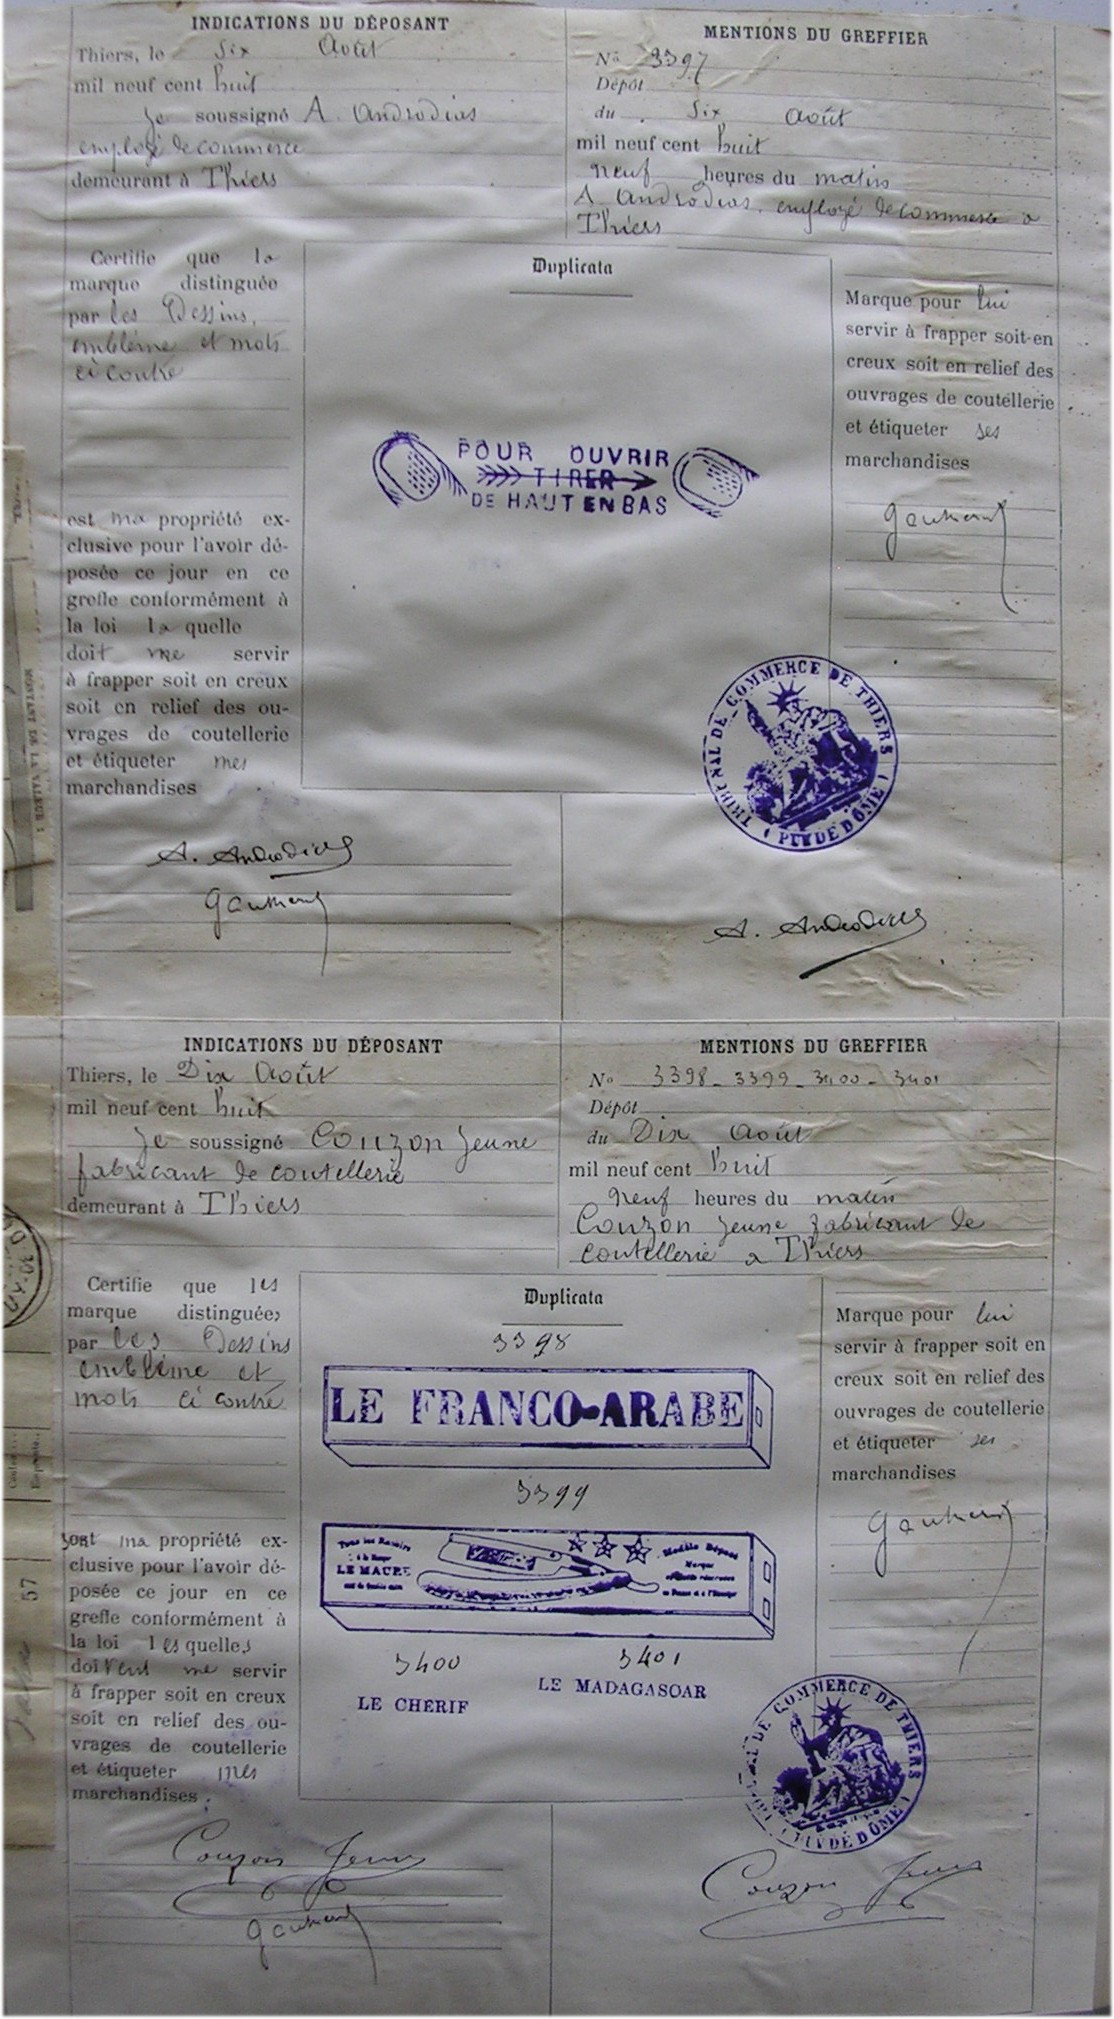 INDICATIONS DU DÉPOSANT
Thiers, le Six Août
mil neuf cent huit
Je soussigné A. Androdias
employé de commerce
demeurant à Thiers
MENTIONS DU GREFFIER
No 3397
Dépôt
du Six Août
mil neuf cent huit
neuf heures du matin
A Androdias, employé de commerce à
Thiers
Certifie que la
marque distinguée
par les Dessins,
emblème et mots
ci contre
est ma propriété ex-
clusive pour l'avoir dé-
posée ce jour en ce
greffe conformément à
la loi la quelle
doit me servir
à frapper soit en creux
soit en relief des ou-
vrages de coutellerie
et étiqueter mes
marchandises
Duplicata
POUR OUVRIR
TIRER
DE HAUT EN BAS
Marque pour lui
servir à frapper soit en
creux soit en relief des
ouvrages de coutellerie
et étiqueter ses
marchandises
TRIBUNAL DE COMMERCE DE THIERS
(PUY DE DÔME)
A. Androdias
A. Androdias
MONTANT DE LA VALEUR :
INDICATIONS DU DÉPOSANT
Thiers, le Dix Août
mil neuf cent huit
Je soussigné Couzon Jeune
fabricant de coutellerie
demeurant à Thiers
MENTIONS DU GREFFIER
No 3398 - 3399 - 3400 - 3401
Dépôt
du Dix Août
mil neuf cent huit
neuf heures du matin
Couzon Jeune fabricant de
coutellerie a Thiers
Certifie que les
marque distinguées
par les Dessins
emblème et
mots ci contre
sont ma propriété ex-
clusive pour l'avoir dé-
posée ce jour en ce
greffe conformément à
la loi les quelles
doivent me servir
à frapper soit en creux
soit en relief des ou-
vrages de coutellerie
et étiqueter mes
marchandises.
Duplicata
3398
LE FRANCO-ARABE
3399
Tous les Rasoirs
à la Marque
LE MAURE
Modèle Déposé
Marque
3400
LE CHERIF
3401
LE MADAGASCAR
Marque pour lui
servir à frapper soit en
creux soit en relief des
ouvrages de coutellerie
et étiqueter ses
marchandises
TRIBUNAL DE COMMERCE DE THIERS
(PUY DE DÔME)
Couzon Jeune
Couzon Jeune
57